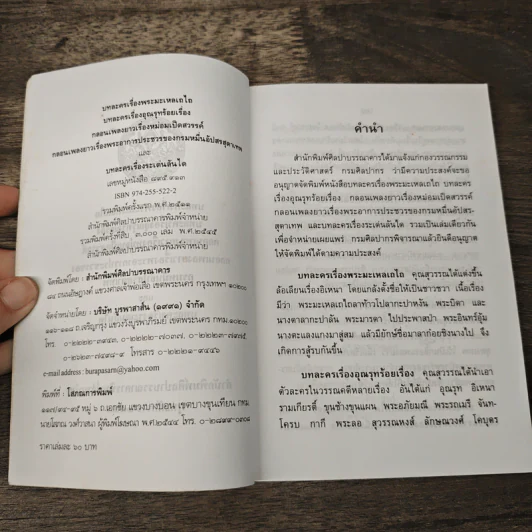 บทละครเรื่องพระมะเหลเถไถ
บทละครเรื่องอุณรุทร้อยเรื่อง
กลอนเพลงยาวเรื่องหม่อมเป็ดสวรรค์
กลอนเพลงยาวเรื่องพระอาการประชวรของกรมหมื่นอัปสรสุดาเทพ
และ
บทละครเรื่องระเด่นลันได
เลขหมู่หนังสือ ๘๙๕.๙๑๓
ISBN 974-255-522-2
รวมพิมพ์ครั้งแรก พ.ศ.๒๕๑๑
สำนักพิมพ์ศิลปาบรรณาคารพิมพ์จำหน่าย
รวมพิมพ์ครั้งที่สิบ ๓,๐๐๐ เล่ม พ.ศ.๒๕๔๕
สำนักพิมพ์ศิลปาบรรณาคารพิมพ์จำหน่าย
จัดพิมพ์โดย : สำนักพิมพ์ศิลปาบรรณาคาร
๘๘ ถนนอัษฎางค์ แขวงศาลเจ้าพ่อเสือ เขตพระนคร กรุงเทพฯ ๑๐๒๐๐
จัดจำหน่ายโดย : บริษัท บูรพาสาส์น (๑๙๙๑) จำกัด
ถ.เจริญกรุง แขวงวังบูรพาภิรมย์ เขตพระนคร กทม.๑๐๒๐๐
โทร.
โทรสาร ๐-๒๒๒๑-๙๔๔๖
e-mail address : burapasarn@yahoo.com
พิมพ์ที่ : โสภณการพิมพ์
๑๑๗/๙๔-๙๕ หมู่ ๖ ถ.เอกชัย แขวงบางบอน เขตบางขุนเทียน กทม.
นายโสภณ ผู้พิมพ์โฆษณา พ.ศ.๒๕๔๕ โทร.
ราคาเล่มละ ๖๐ บาท
คำนำ
สำนักพิมพ์ศิลปาบรรณาคารได้มาแจ้งแก่กองวรรณกรรม
และประวัติศาสตร์ กรมศิลปากร ว่ามีความประสงค์จะขอ
อนุญาตจัดพิมพ์หนังสือบทละครเรื่องพระมะเหลเถไถ บทละคร
เรื่องอุณรุทร้อยเรื่อง กลอนเพลงยาวเรื่องหม่อมเป็ดสวรรค์
กลอนเพลงยาวเรื่องพระอาการประชวรของกรมหมื่นอัปสร-
สุดาเทพ และบทละครเรื่องระเด่นลันได รวมเป็นเล่มเดียวกัน
เพื่อจำหน่ายเผยแพร่ กรมศิลปากรพิจารณาแล้วยินดีอนุญาต
ให้จัดพิมพ์ได้ตามความประสงค์
บทละครเรื่องพระมะเหลเถไถ คุณสุวรรณได้แต่งขึ้น
ล้อเลียนเรื่องอิเหนา โดยแกล้งตั้งชื่อให้เป็นชาวชวา เนื้อเรื่อง
มีว่า พระมะเหลเถไถลาท้าวโปลากะปาหงัน พระบิดา และ
นางตาลากะปาลัน พระมารดา ไปประพาสป่า พระอินทร์อุ้ม
นางตะแลงแกงมาสู่สม แล้วมียักษ์ชื่อมาลาก๋อยชิงนางไป จึง
เกิดการสู้รบกันขึ้น
บทละครเรื่องอุณรุทร้อยเรื่อง คุณสุวรรณได้นำเอา
ตัวละครในวรรณคดีหลายเรื่อง อันได้แก่ อุณรุท อิเหนา
รามเกียรติ์ ขุนช้างขุนแผน พระอภัยมณี พระรถเมรี จันท-
โครบ กากี พระลอ สุวรรณหงส์ ลักษณวงศ์ โคบุตร